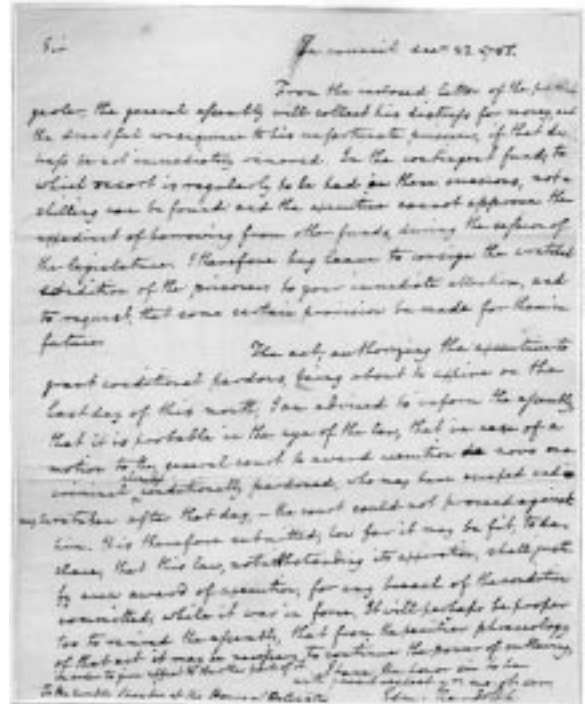 Sir In council decr
From the inclosed letter of the
the general assembly will collect his distress for money, and
the dreadful consequence to his unfortunate prisoners, if that
be not immediately removed. In the contingent funds, to
which resort is regularly to be had in these occasions, not a
shilling can be found and the executive cannot approve the
expedient of borrowing from other funds, during the session of
the legislature. I therefore beg leave to consign the wretched
condition of the prisoners to your immediate attention, and
to request, that some certain provision be made for them in
future.
The act, authorizing the executive to
grant conditional pardons, being about to expire on the
last day of this month, I am advised to inform the assembly,
that it is probable in the eye of the law, that in case of a
motion to the general court to award execution de novo on a
criminal, already conditionally pardoned, who may have escaped and
may be retaken after that day, – the court could not proceed against
him. It is therefore submitted, how far it may be fit, to de
clare, that this law, notwithstanding its expiration, shall
an award of execution, for any breach of the condition
committed, while it was in force. It will perhaps be proper
too to remind the assembly, that from the peculiar phraseology
of that act it may be necessary to continue the power of
in order to give effect to another part of it. I have the honor sir to be
with great respect yr mo. ob. serv
To the honble Speaker of the House of Delegates Edm: Randolph